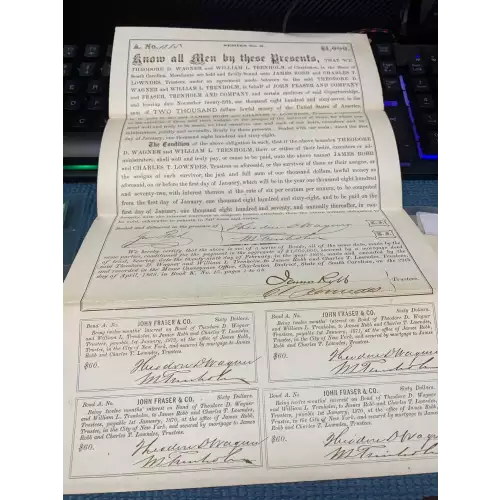 A. No.
SERIES No. 2.
$1,000.
Know all Men by these Presents, THAT WE
THEODORE D. WAGNER and WILLIAM L. TRENHOLM, of Charleston, in the State of
South Carolina, Merchants are held and firmly bound unto JAMES ROBB and CHARLES T.
LOWNDES, Trustees under an agreement made between the said THEODORE D.
WAGNER and WILLIAM L. TRENHOLM, in behalf of JOHN FRASER AND COMPANY
and FRASER, TRENHOLM AND COMPANY, and certain creditors of said Copartnerships,
and bearing date November twenty-fifth, one thousand eight hundred and sixty-seven, in the
sum of TWO THOUSAND dollars lawful money of the United States of America,
January, one thousand eight hundred and sixty-eight.
The Condition of the above obligation is such, that if the above bounden THEODORE
D. WAGNER and WILLIAM L. TRENHOLM, their or either of their heirs, executors or ad-
ministrators, shall well and truly pay, or cause to be paid, unto the above named JAMES ROBB
and CHARLES T. LOWNDES, Trustees as aforesaid, or the survivor of them or their assigns, or
the assigns of such survivor, the just and full sum of one thousand dollars, lawful money as
aforesaid, on or before the first day of January, which will be in the year one thousand eight hundred
and seventy-two, with interest thereon at the rate of six per centum per annum, to be computed
from the first day of January, one thousand eight hundred and sixty-eight, and to be paid on the
first day of January, one thousand eight hundred and seventy, and annually thereafter, in
Sealed and delivered in the presence of
Theodore D Wagner
W L Trenholm
We hereby certify, that the above is one of a series of Bonds, all of the same date, made by the
James Robb
C. T. Lowndes
Trustees.
Bond A. No.
Sixty Dollars.
JOHN FRASER & CO.
Being twelve months' interest on Bond of Theodore D. Wagner
and William L. Trenholm, to James Robb and Charles T. Lowndes,
Trustees, payable 1st January, 1872, at the office of James Robb,
Trustee, in the City of New York, and secured by mortgage to James
Robb and Charles T. Lowndes, Trustees.
$60.
Theodore D Wagner
W L Trenholm
Bond A. No.
Sixty Dollars.
JOHN FRASER & CO.
Being twelve months' interest on Bond of Theodore D. Wagner
and William L. Trenholm, to James Robb and Charles T. Lowndes,
Trustees, payable 1st January, 1871, at the office of James Robb,
Trustee, in the City of New York, and secured by mortgage to James
Robb and Charles T. Lowndes, Trustees.
$60.
Theodore D Wagner
W L Trenholm
Bond A. No.
Sixty Dollars.
JOHN FRASER & CO.
Being twelve months' interest on Bond of Theodore D. Wagner
and William L. Trenholm, to James Robb and Charles T. Lowndes,
Trustees, payable 1st January, 1870, at the office of James Robb,
Trustee, in the City of New York, and secured by mortgage to James
Robb and Charles T. Lowndes, Trustees.
$60.
Theodore D Wagner
W L Trenholm
Bond A. No.
Sixty Dollars.
JOHN FRASER & CO.
Being twelve months' interest on Bond of Theodore D. Wagner
and William L. Trenholm, to James Robb and Charles T. Lowndes,
Trustees, payable 1st January, 1870, at the office of James Robb,
Trustee, in the City of New York, and secured by mortgage to James
Robb and Charles T. Lowndes, Trustees.
$60.
Theodore D Wagner
W L Trenholm